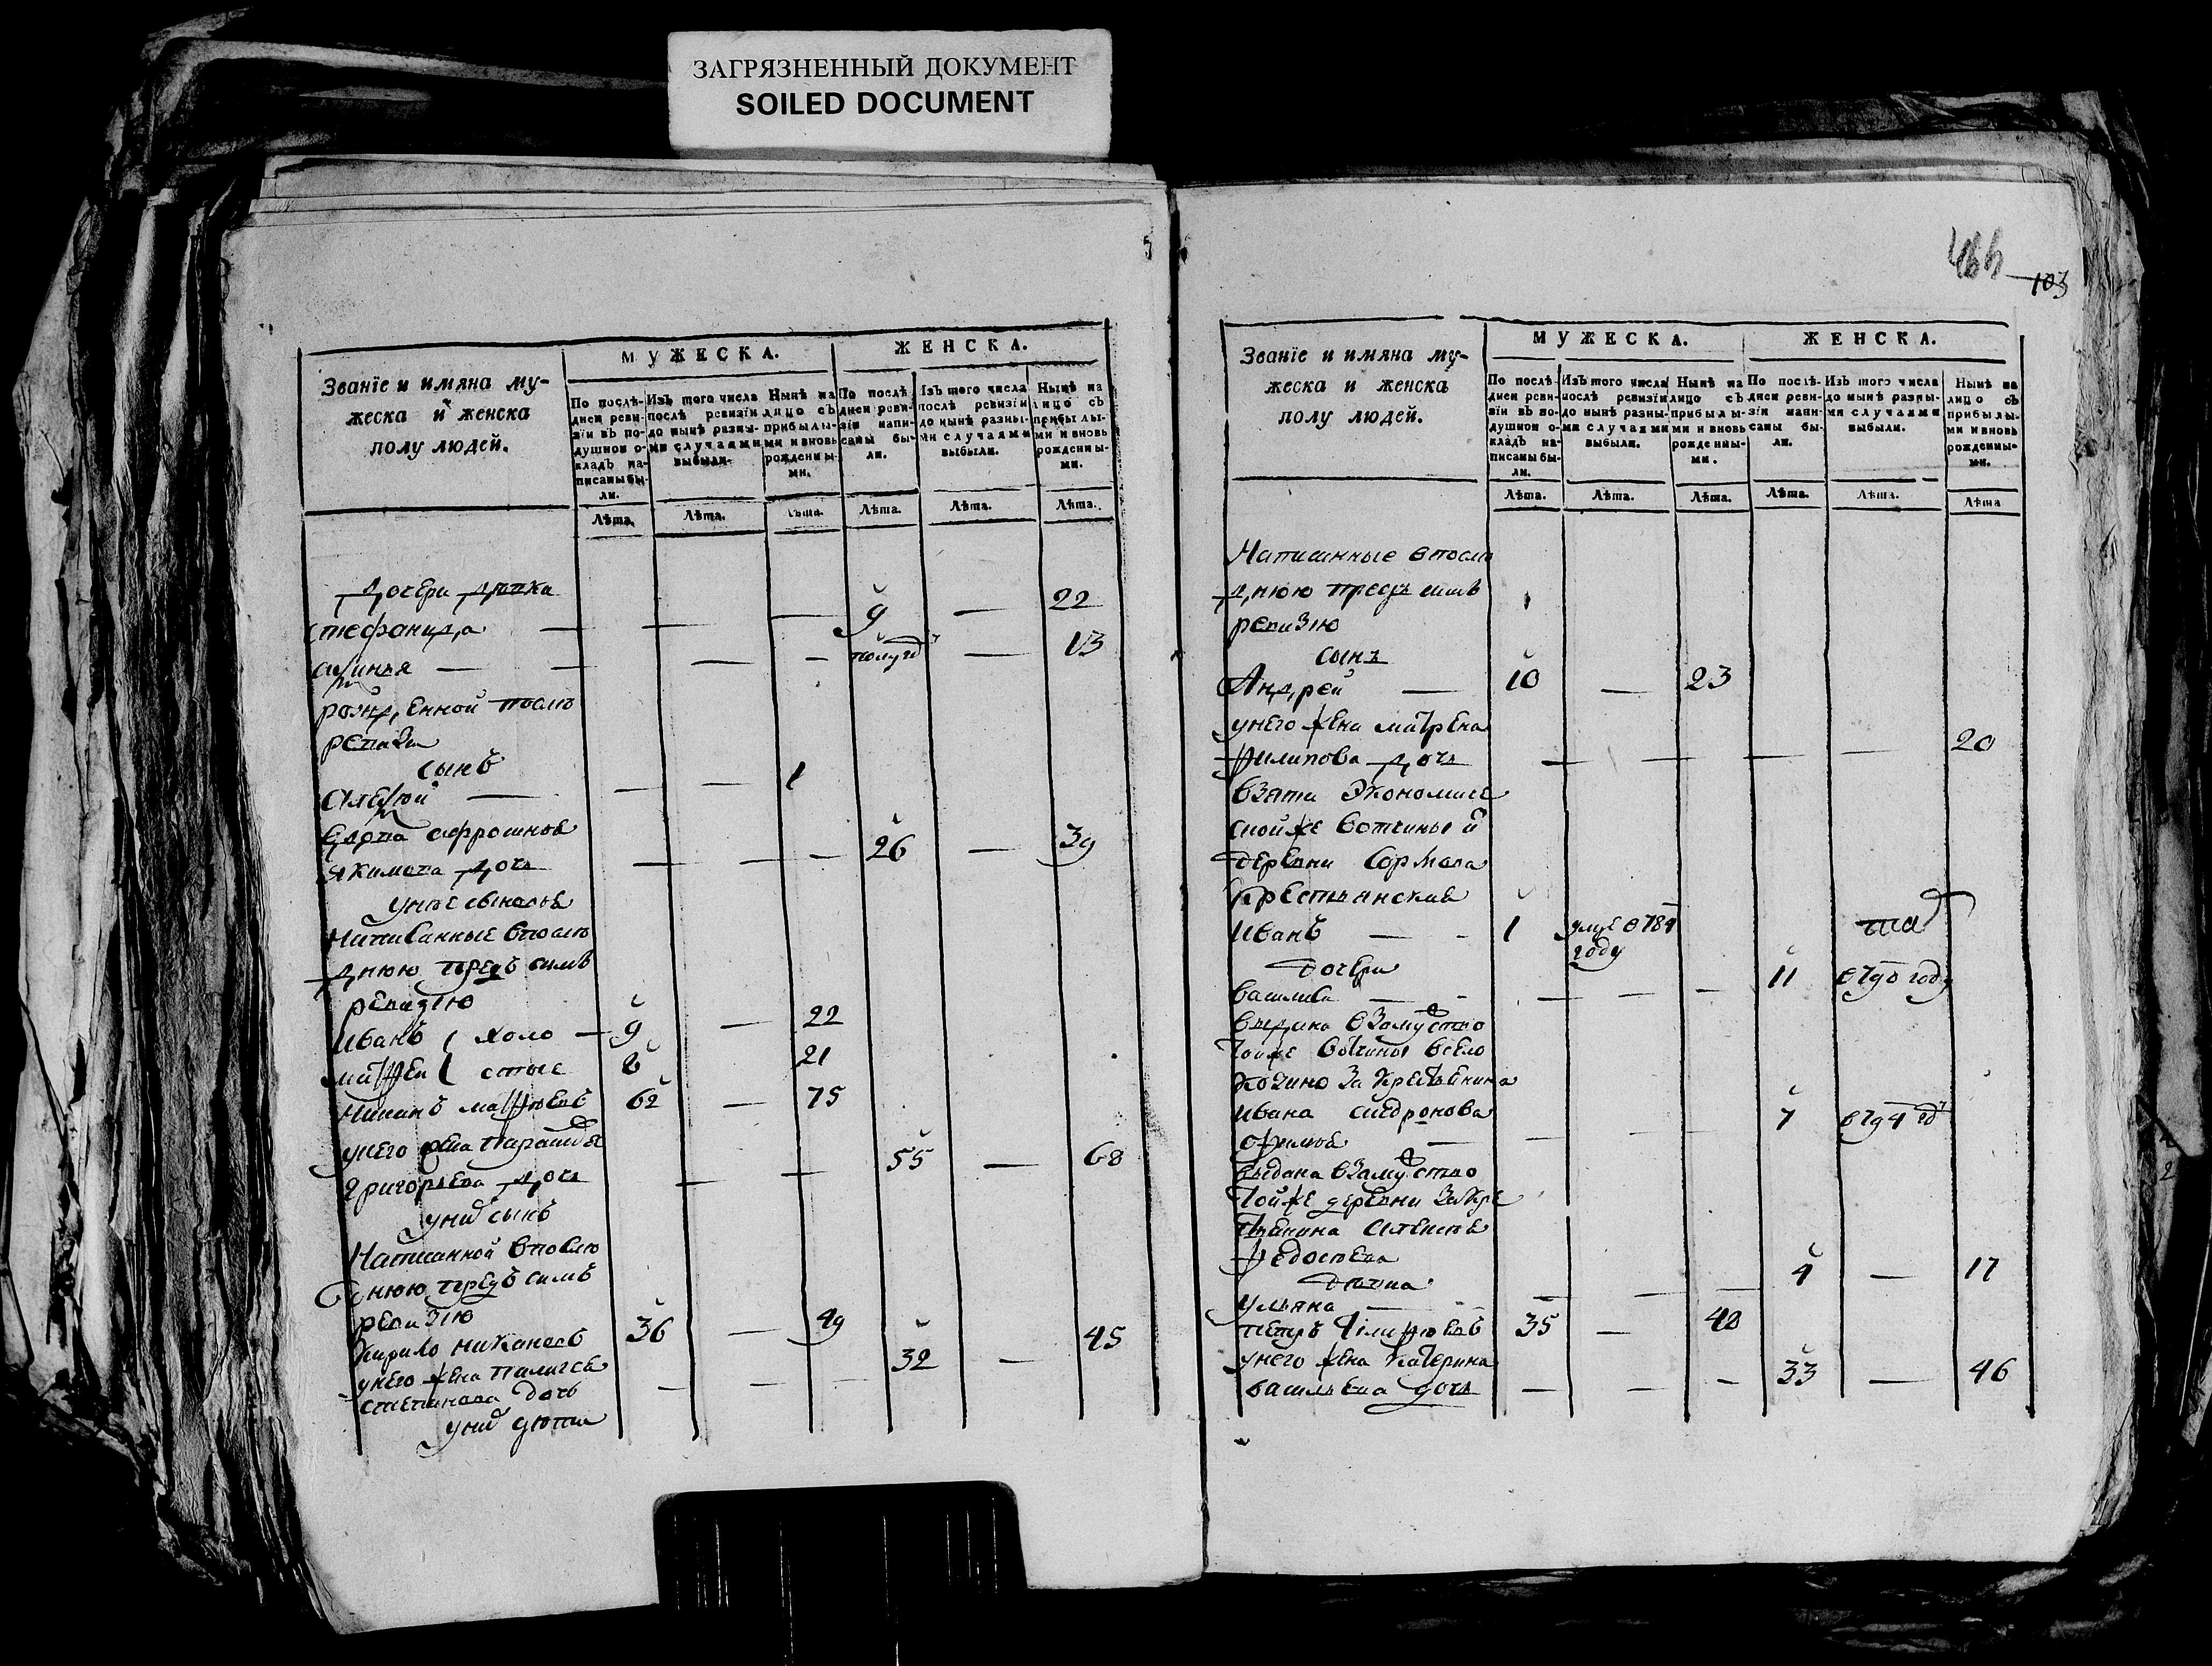 ЗАГРЯЗНЕННЫЙ ДОКУМЕНТ
SOILED DOCUMENT
Званїе и имяна му-
жеска и женска
полу людей.
МУЖЕСКА.
ЖЕНСКА.
По послѣ-
дней реви-
зїи въ по-
душной о-
кладъ на-
писаны бы-
ли.
Изъ того числа
послѣ ревизїи
до нынѣ разны-
ми случаями
выбыли.
Нынѣ на
лицо съ
прибылы-
ми и вновь
рожденны-
ми.
По послѣ-
дней реви-
зїи напи-
саны бы-
ли.
Изъ того числа
послѣ ревизїи
до нынѣ разны-
ми случаями
выбыли.
Нынѣ на
лицо съ
прибылы-
ми и вновь
рожденны-
ми.
Лѣта. Лѣта. Лѣта. Лѣта. Лѣта. Лѣта.
дочери девка
стефанида — — — 9 — 22
— — — — полугод — 13
рожденной после
ревизи
сынъ
Алексѣй — — — 1
вдова афросинья
якимова дочь — — — 26 — 39
унее сыновья
Написанные впосле
днюю предъ симъ
ревизïю
Иванъ холо — 9 — 22
матфей стые 8 21
матфеевъ 62 — 75
унего жена
григорьева дочь — — 55 — 68
унихъ сынъ
Написанной впосле
днюю предъ симъ
ревизïю
кирило 36 — 49
унего жена пелагея 32 — 45
степанова дочь — — —
унихъ дети
466
103
Званїе и имяна му-
жеска и женска
полу людей.
МУЖЕСКА.
ЖЕНСКА.
По послѣ-
дней реви-
зїи въ по-
душной о-
кладъ на-
писаны бы-
ли.
Изъ того числа
послѣ ревизїи
до нынѣ разны-
ми случаями
выбыли.
Нынѣ на
лицо съ
прибылы-
ми и вновь
рожденны-
ми.
По послѣ-
дней реви-
зїи напи-
саны бы-
ли.
Изъ того числа
до нынѣ разны-
ми случаями
выбыли.
Нынѣ на
лицо съ
прибылы-
ми и вновь
рожденны-
ми.
Лѣта. Лѣта. Лѣта. Лѣта. Лѣта. Лѣта
Написанные впосле
днюю предъ симъ
ревизïю
сынъ
Андрей — 10 — 23
унего жена матрена
филипова дочь — — — — 20
взята Экономиче
ской же вотчины и
деревни
крестьянская
Иванъ — - 1 умре в 784
году
дочери
василиса — - — — — 11 в 790 году
выдана взамуство
тойже вотчины всело
за крестьянина
Ивана
— — — — 7 в 794 год
выдана взамуство
тойже деревни за кре
стьянина алексея
федосеева
дочка
ульяна — — — — 4 — 17
петръ 35 — 48
унего жена катерина
васильева дочь — — - 33 — 46